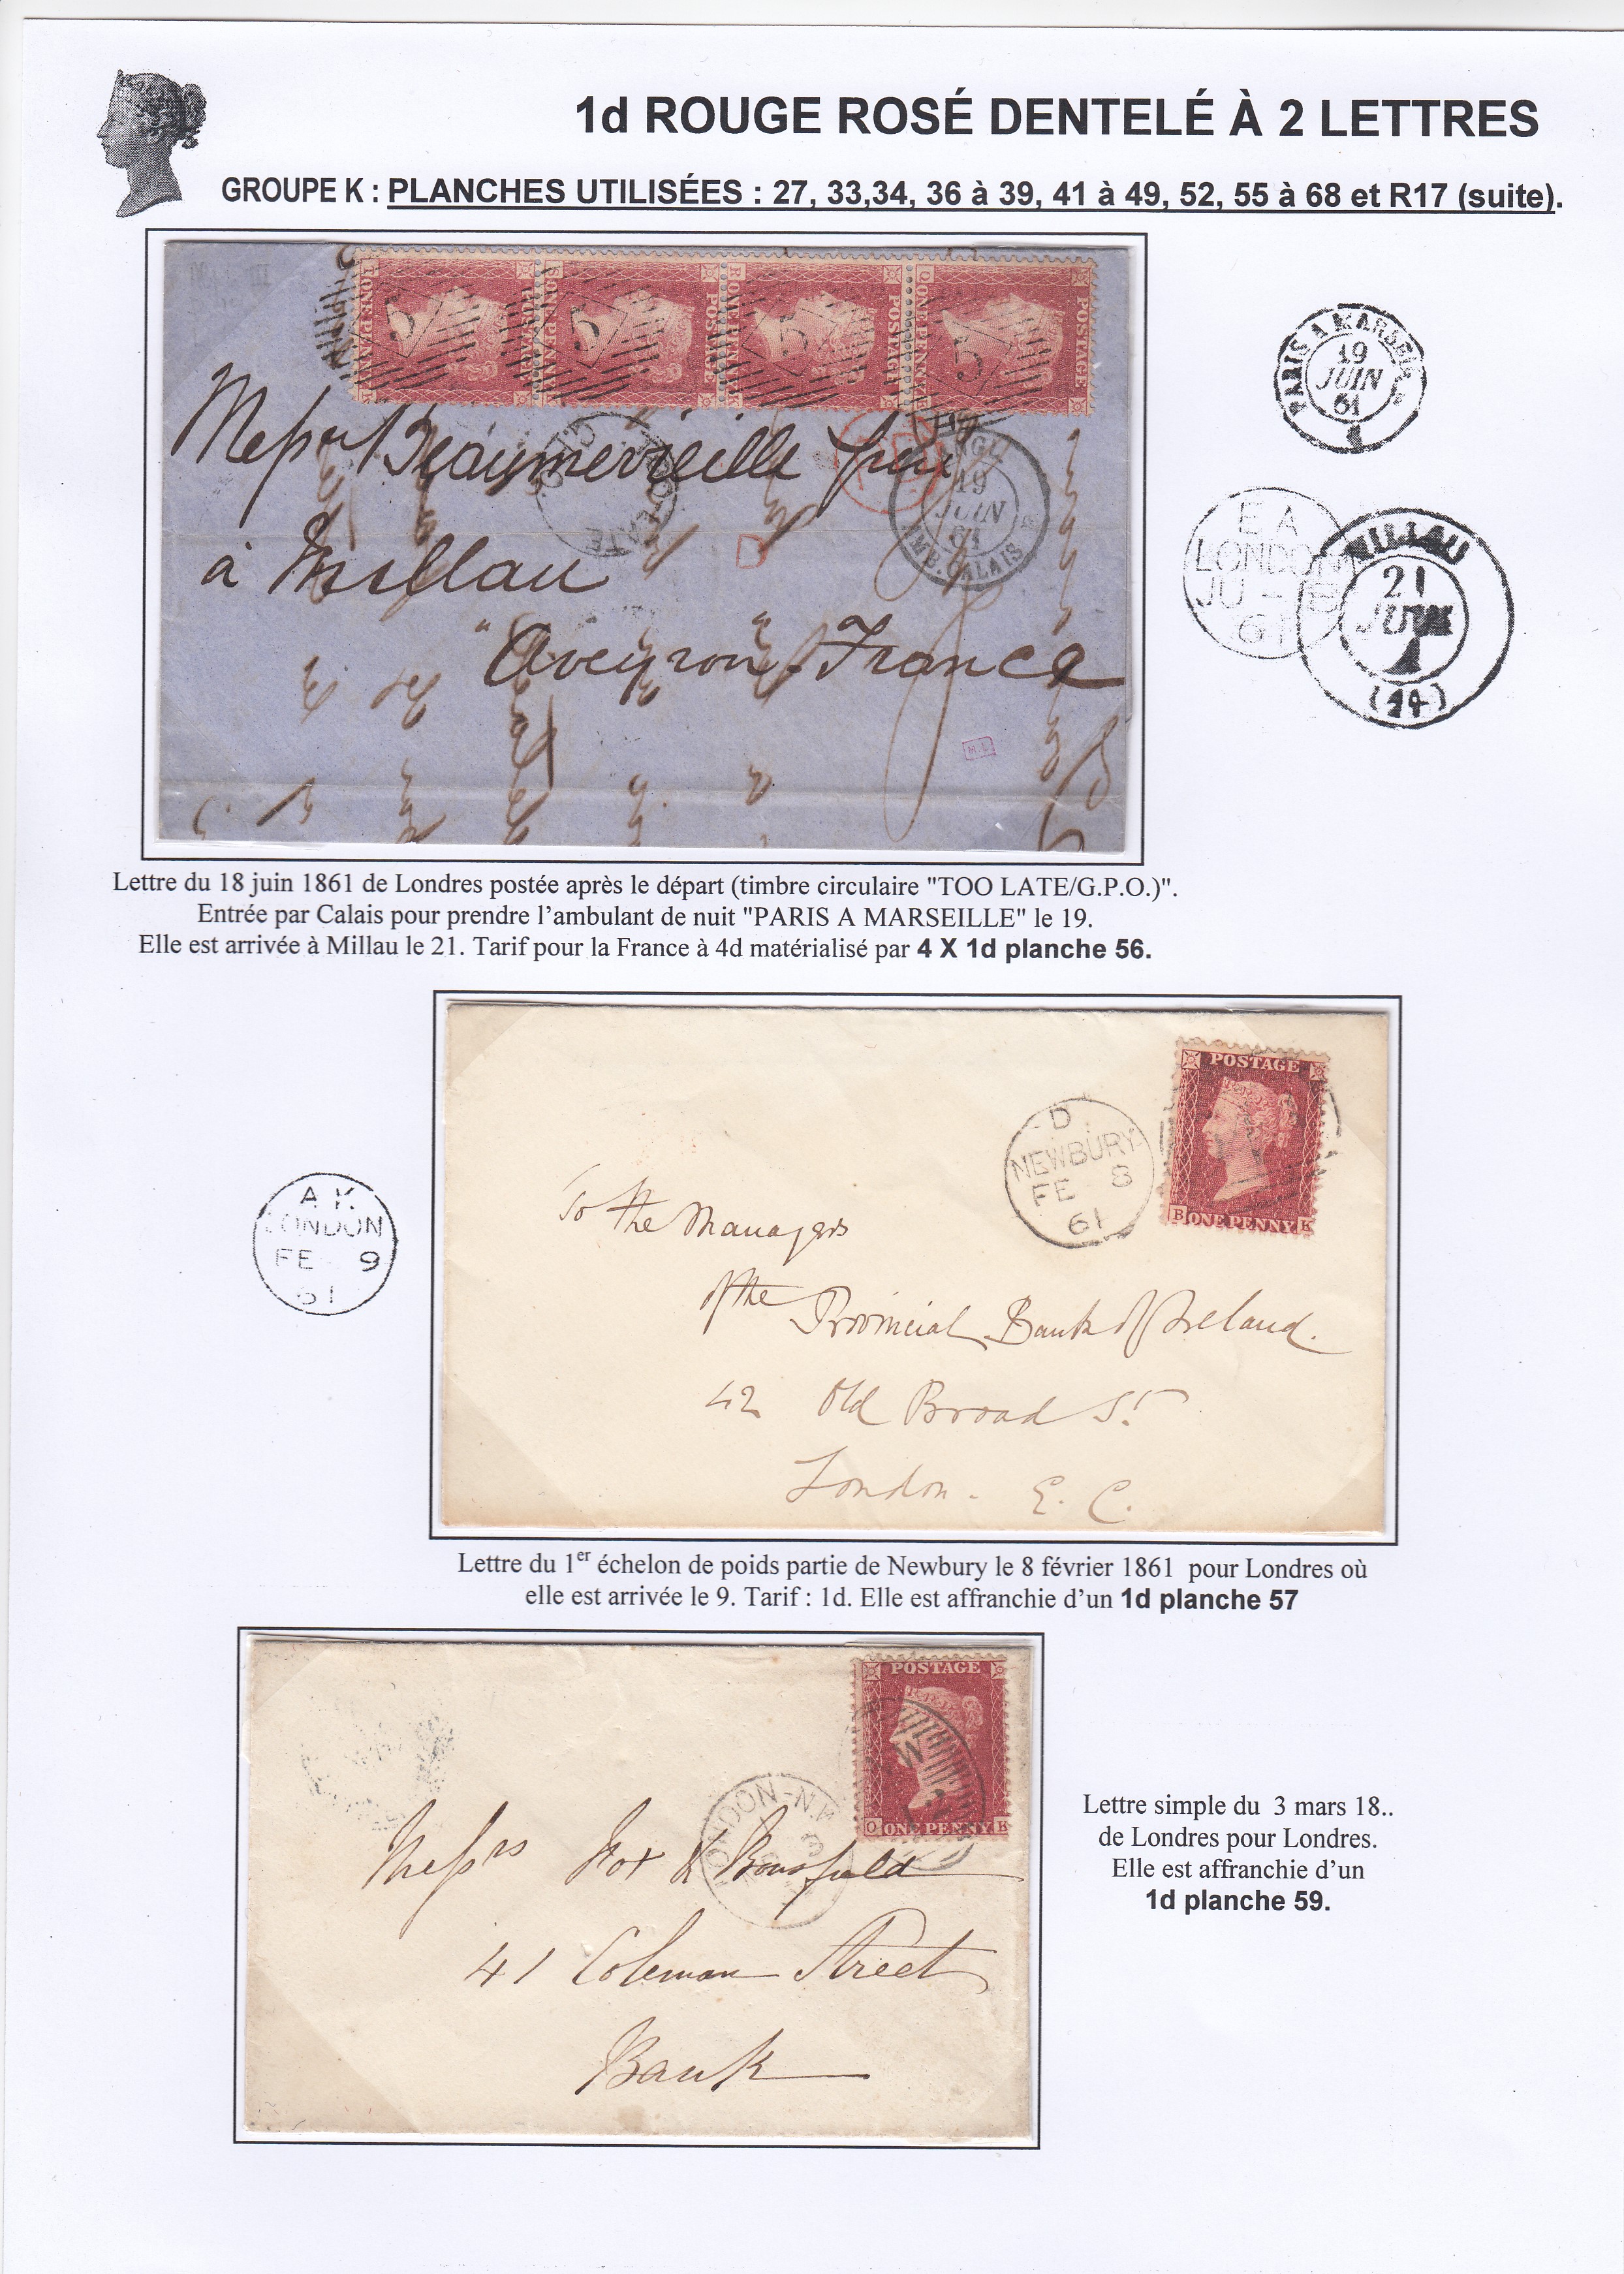 1d ROUGE ROSÉ DENTELÉ À 2 LETTRES
GROUPE K : PLANCHES UTILISÉES : 27, 33,34, 36 à 39, 41 à 49, 52, 55 à 68 et R17 (suite).
ONE PENNY POSTAGE
ONE PENNY POSTAGE
R ONE PENNY POSTAGE
Q ONE PENNY POSTAGE
Messrs
à Millau
Aveyron France
TOO LATE
G.P.O.
ANGL.
19
JUIN
61
AMB. CALAIS
PARIS A MARSEILLE
19
JUIN
61
E A
LONDON
JU
61
MILLAU
21
JUIN
Lettre du 18 juin 1861 de Londres postée après le départ (timbre circulaire "TOO LATE/G.P.O.)".
Entrée par Calais pour prendre l’ambulant de nuit "PARIS A MARSEILLE" le 19.
Elle est arrivée à Millau le 21. Tarif pour la France à 4d matérialisé par 4 X 1d planche 56.
POSTAGE
B ONE PENNY K
D
NEWBURY
FE 8
61
To the Managers
of the Provincial Bank of Ireland.
42 Old Broad St
London. E. C.
A K
LONDON
FE 9
61
Lettre du 1er échelon de poids partie de Newbury le 8 février 1861 pour Londres où
elle est arrivée le 9. Tarif : 1d. Elle est affranchie d’un 1d planche 57
POSTAGE
O ONE PENNY K
LONDON-N.W
3
Messrs Fox & Bousfield
41 Coleman Street
Bank
Lettre simple du 3 mars 18..
de Londres pour Londres.
Elle est affranchie d’un
1d planche 59.